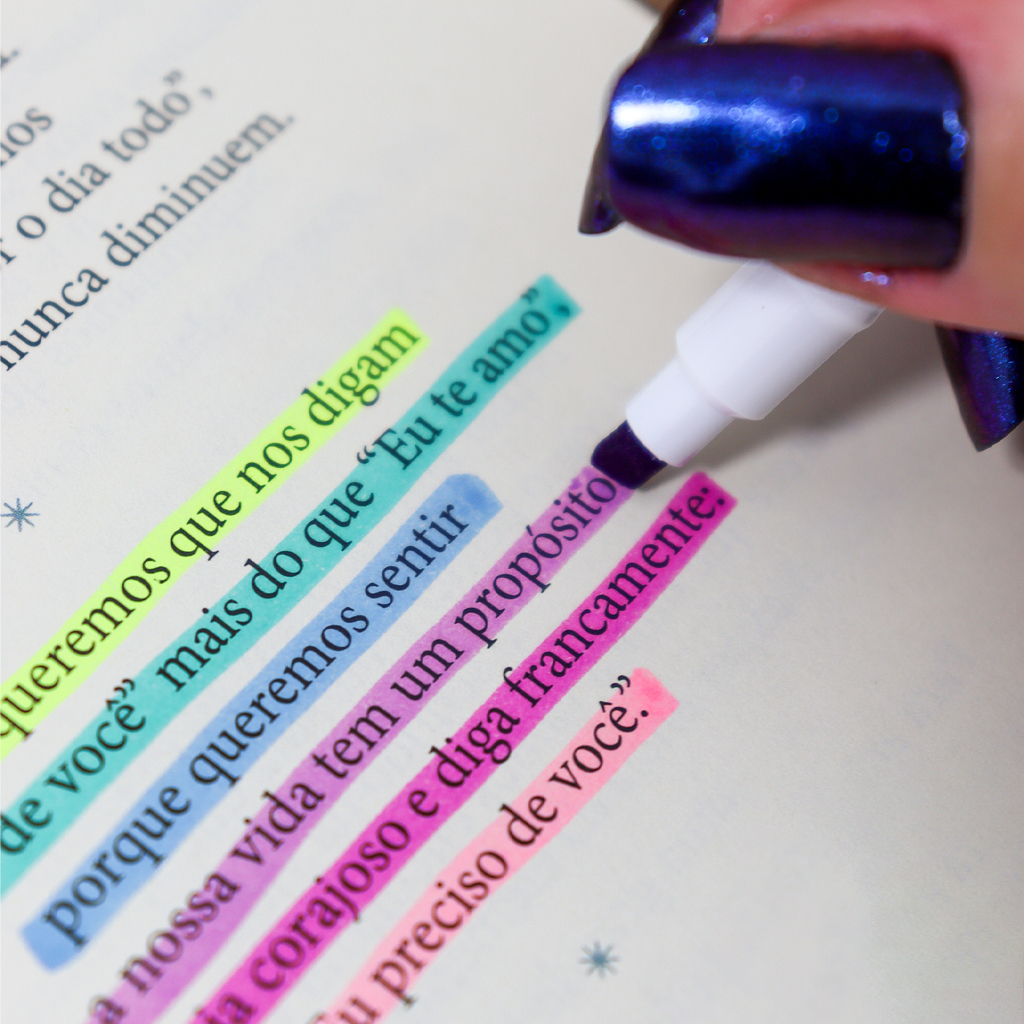 o dia todo”,
nunca diminuem.
queremos que nos digam
de você” mais do que “Eu te amo”,
porque queremos sentir
a nossa vida tem um propósito
corajoso e diga francamente:
preciso de você.”